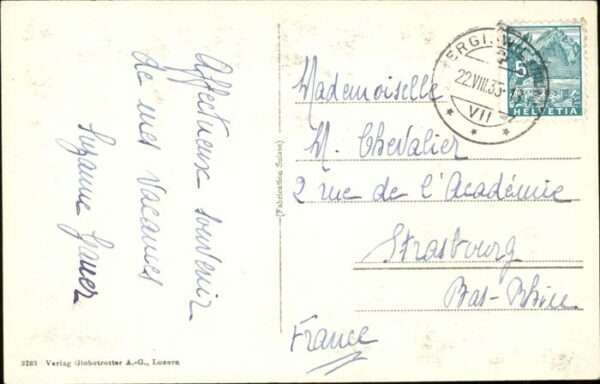 Affectueux souvenir
de mes vacances
Suzanne
Mademoiselle
M. Chevalier
2 rue de l'Académie
Strasbourg
Bas-Rhin
France
22.VIII.35
VII
5
HELVETIA
Verlag Globetrotter A.-G., Luzern